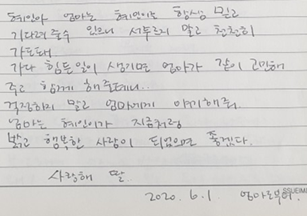 혜인아 엄마는 혜인이는 항상 믿고
기다려 줄수 있으니 서두르지 말고 천천히
가도돼.
가다 힘든일이 생기면 엄마가 같이 고민해
주고 함께 해줄테니..
걱정하지 말고 엄마에게 얘기해줘.
엄마는 혜인이가 지금처럼
밝고 행복한 사람이 되었으면 좋겠다.
사랑해 딸
2020. 6. 1 엄마로부터.